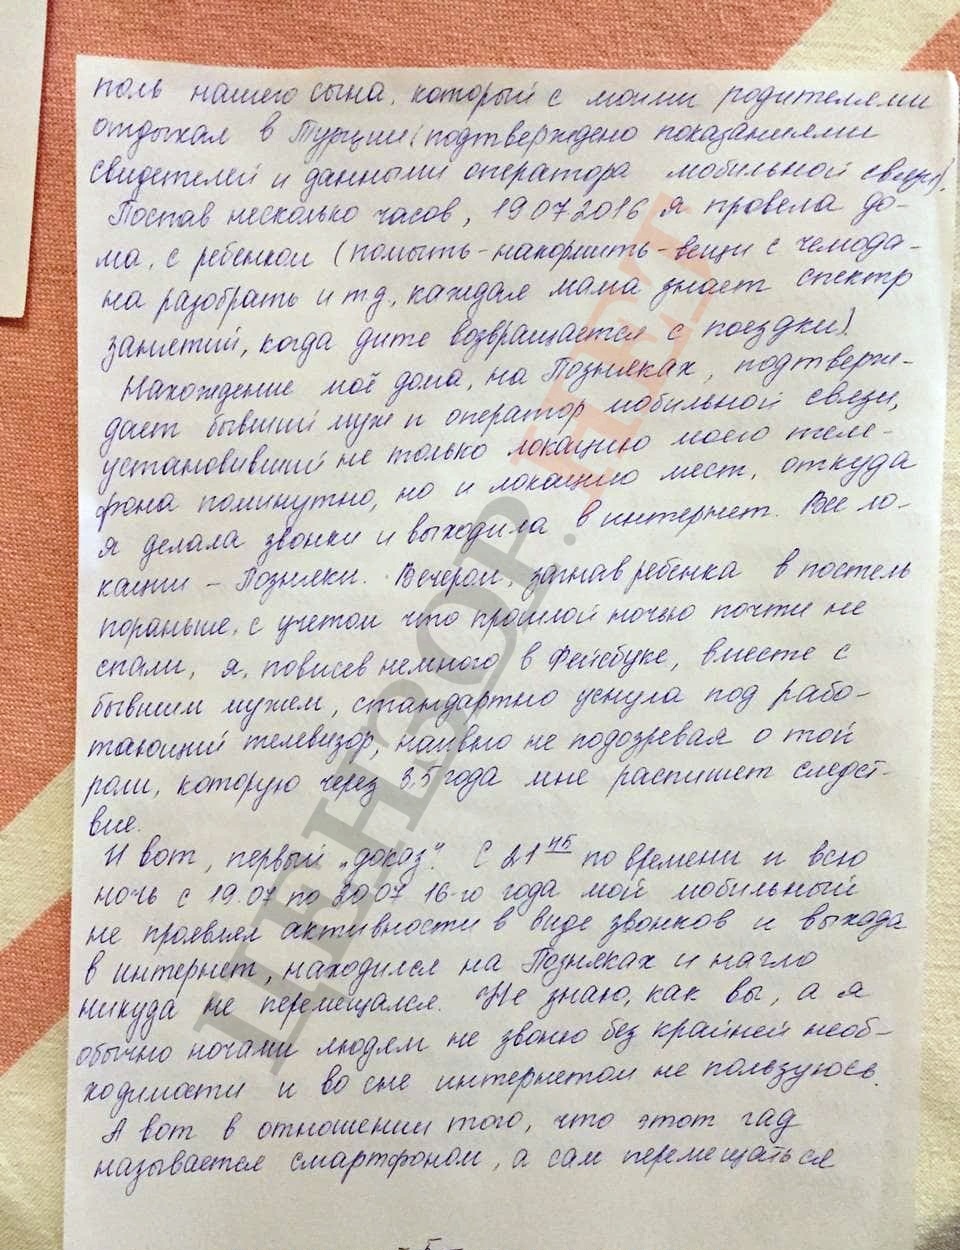 поль нашего сына, который с моими родителями
отдыхал в Турции (подтверждено показаниями
свидетелей и данными оператора мобильной связи).
Поспав несколько часов, 19 07 2016 я провела до-
ма, с ребенком (помыть-накормить-вещи с чемода-
на разобрать и т д, каждая мама знает спектр
занятий, когда дитё возвращается с поездки).
Нахождение моё дома, на Позняках, подтверж-
дает бывший муж и оператор мобильной связи,
установивший не только локацию моего теле-
фона поминутно, но и локацию мест, откуда
я делала звонки и выходила в интернет. Все ло-
кации – Позняки. Вечером, загнав ребенка в постель
пораньше, с учетом что прошлой ночью почти не
спали, я, повисев немного в Фейсбуке, вместе с
бывшим мужем, стандартно уснула под рабо-
тающий телевизор, наивно не подозревая о той
роли, которую через 3,5 года мне распишет следст-
вие.
И вот, первый „доказ". С 21 45 по времени и всю
ночь с 19.07 по 20.07 16-го года мой мобильный
не проявлял активности в виде звонков и выхода
в интернет, находился на Позняках и нагло
никуда не перемещался. Не знаю, как вы, а я
обычно ночами людям не звоню без крайней необ-
ходимости и во сне интернетом не пользуюсь.
А вот в отношении того, что этот гад
называется смартфоном, а сам перемещаться
- 5 -
ЦЕНЗОР.НЕТ